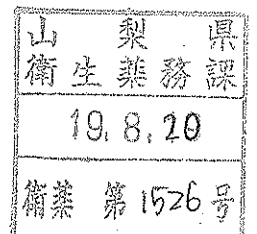 山梨県
衛生薬務課
19.8.20
衛薬 第1526号